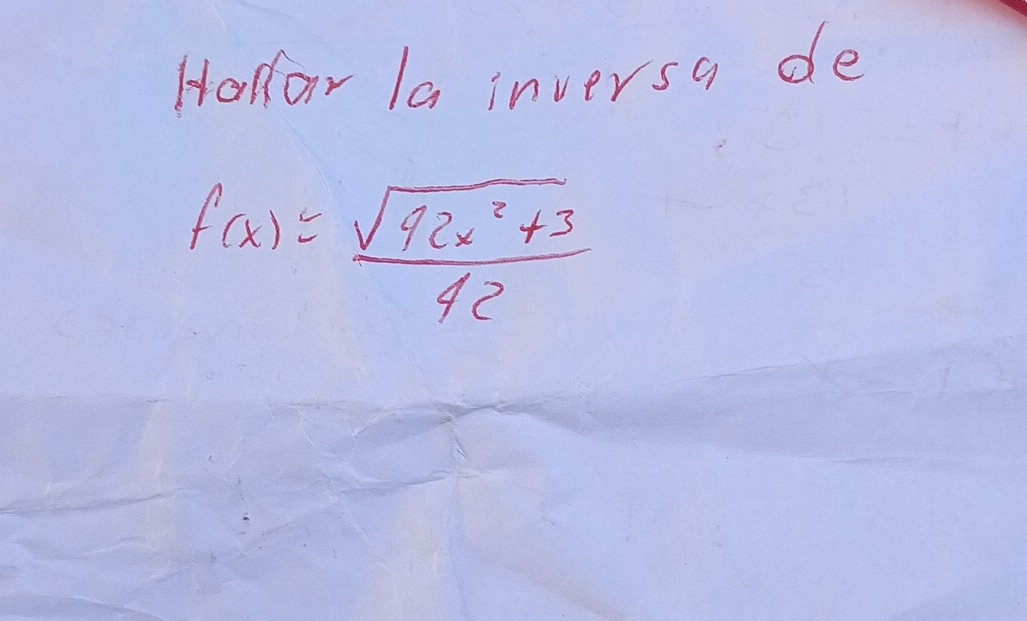 Hallar la inversa de
f(x) = √(42x² + 3) / 42